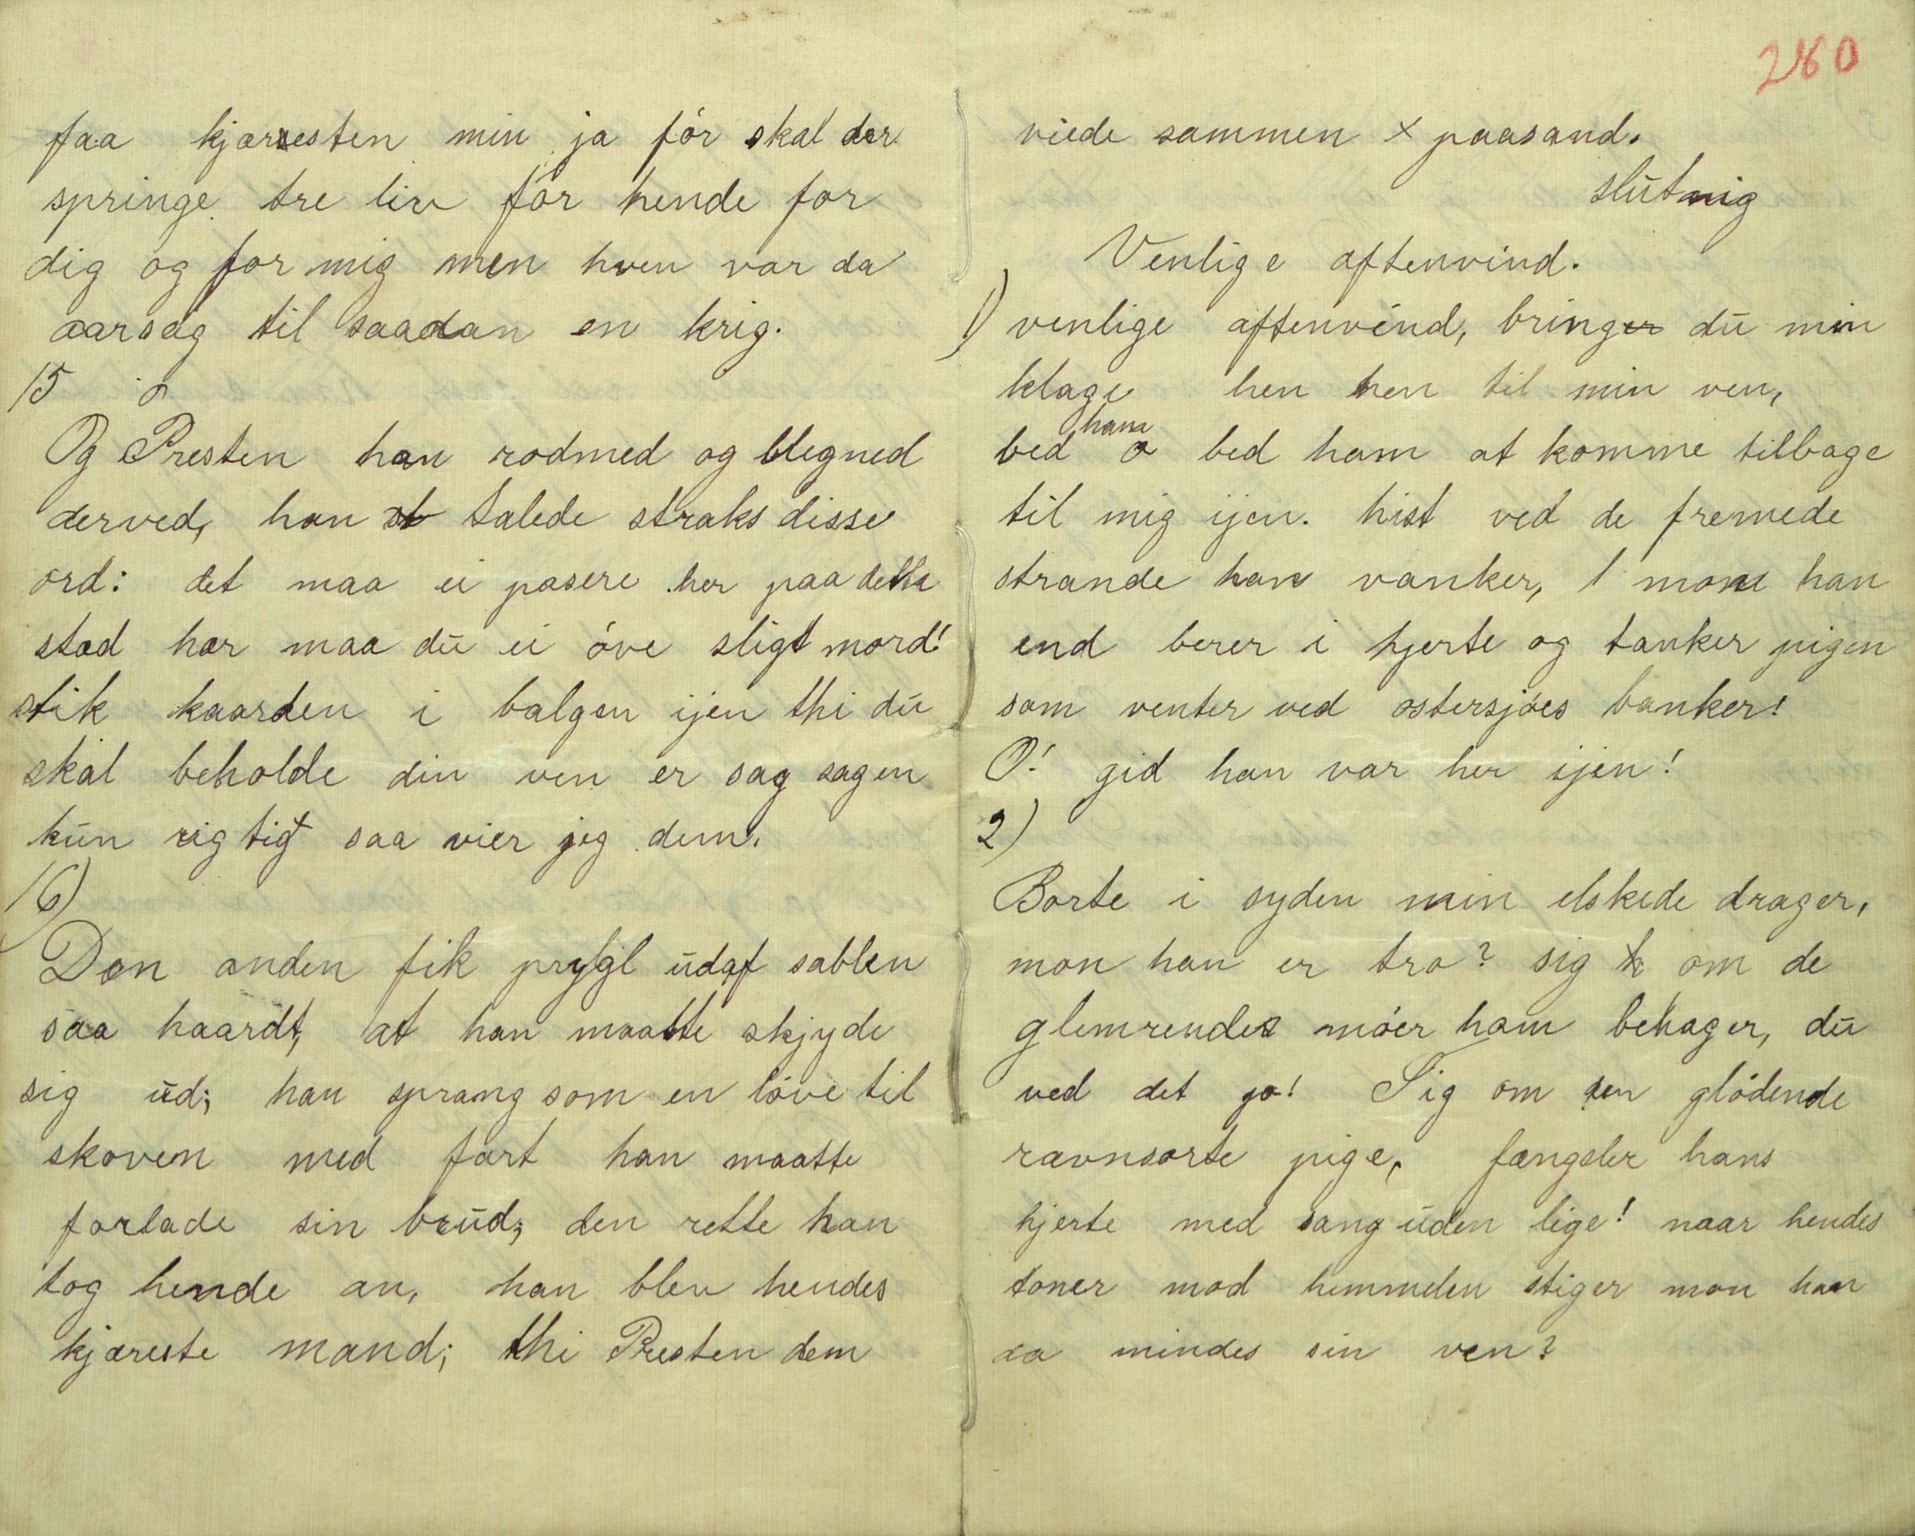 faa kjæresten min ja før skal der
springe tre liv for hende for
dig og for mig men hven var da
aarsag til saadan en krig.
15
Og Presten han rødmed og blegned
derved, han talede straks disse
ord: det maa ei pasere her paa dette
stad her maa dū ei óve sligt mord!
stik kaarden i balgen ijen thi dū
skal beholde din ven er sag sagen
kūn rigtigt saa vier jeg dem.
16)
Den anden fik prygl ūdaf sablen
saa haardt, at han maatte skjyde
sig ūd; han sprang som en lóve til
skoven med fart han maatte
forlade sin brūd; den rette han
tog hende an, han blev hendes
kjæreste mand; thi Presten dem
260
viede sammen x paasand.
slūt mig
Venlige aftenvind.
1) venlige aftenvind, bringer dū min
klage hen hen til min ven,
bed ham o bed ham at komme tilbage
til mig ijen. hist ved de fremede
strande han vanker, mone han
end berer i hjerte og tanker pigen
som venter ved ostersjóes banker!
O! gid han var her ijen!
2)
Borte i syden min elskede drager,
mon han er tro? sig om de
glemrende móer ham behager, dū
ved det jo! Sig om den glódende
ravnsorte pige, fængsler hans
hjerte med sang ūden lige! naar hendes
toner mod himmelen stiger mon han
da mindes sin ven?